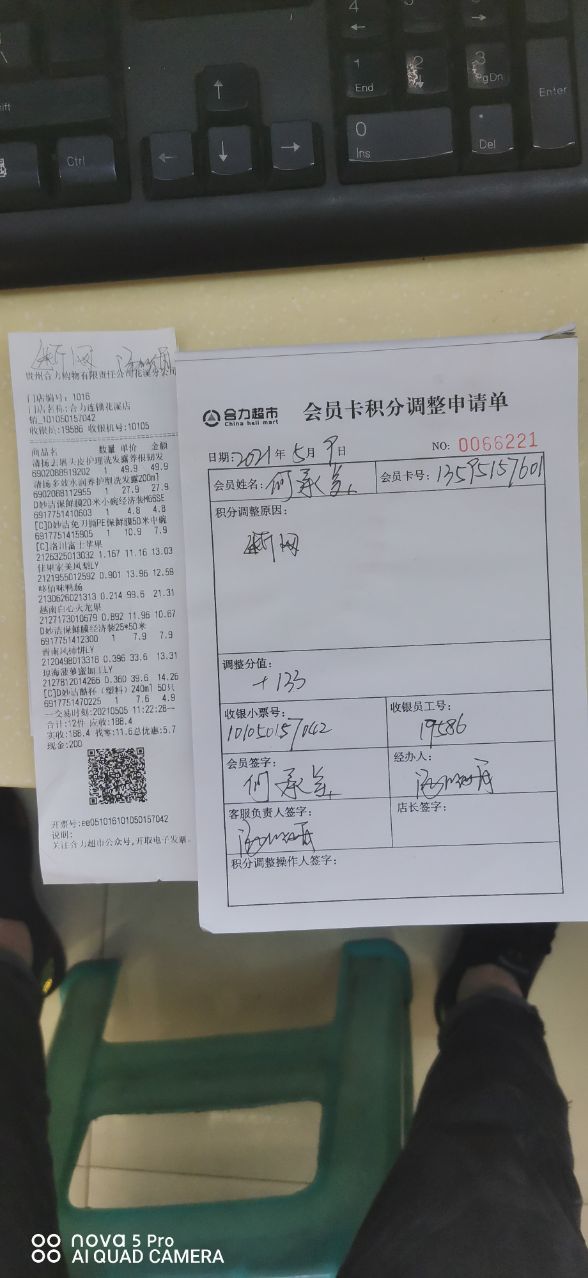 4
6
←
→
1
End
2
↓
3
PgDn
Enter
0
Ins
.
Del
Ctrl
↑
←
↓
→
断网
贵州合力购物有限责任公司花溪分公司
门店编号: 1016
门店名号: 合力连锁花溪店
销_101050157042
收银员:19586 收银机号:10105
商品名 数量 单价 金额
6902088519202 1 49.9 49.9
清扬多效水润养护型洗发露200ml
6902088112955 1 27.9 27.9
D妙洁保鲜膜20米小碗经济装M66SE
6917751475902 1 4.8 4.8
[C]D妙洁免刀撕PE保鲜膜50米中碗
6917751415905 1 10.9 7.9
[C]洛川富士苹果
2126325013032 1.167 11.16 13.03
佳果家美凤梨LY
2121955012592 0.901 13.96 12.58
2130626021313 0.214 99.6 21.31
越南白心火龙果
2127173010679 0.892 11.96 10.67
D妙洁保鲜膜经济装25*50米
6917751412300 1 7.9 7.9
晋南风柿饼LY
2120498013318 0.396 33.6 13.31
2127812014266 0.360 39.6 14.26
[C]D妙洁酷杯(塑料)240ml 50只
6917751470225 1 7.6 4.9
—交易时刻:20210505 11:22:28—
合计:12件 应收:188.4
实收:188.4 找零:11.6总优惠:5.7
现金:200
开票号:ee051016101050157042
说明:
关注合力超市公众号,开取电子发票.
合力超市
China heli mart
会员卡积分调整申请单
日期:2021年5月9日
NO: 0066221
会员姓名: 何承兰
会员卡号: 13595157601
积分调整原因:
断网
调整分值:
+133
收银小票号:
101050157042
收银员工号:
19586
会员签字:
何承兰
经办人:
客服负责人签字:
店长签字:
积分调整操作人签字:
nova 5 Pro
AI QUAD CAMERA